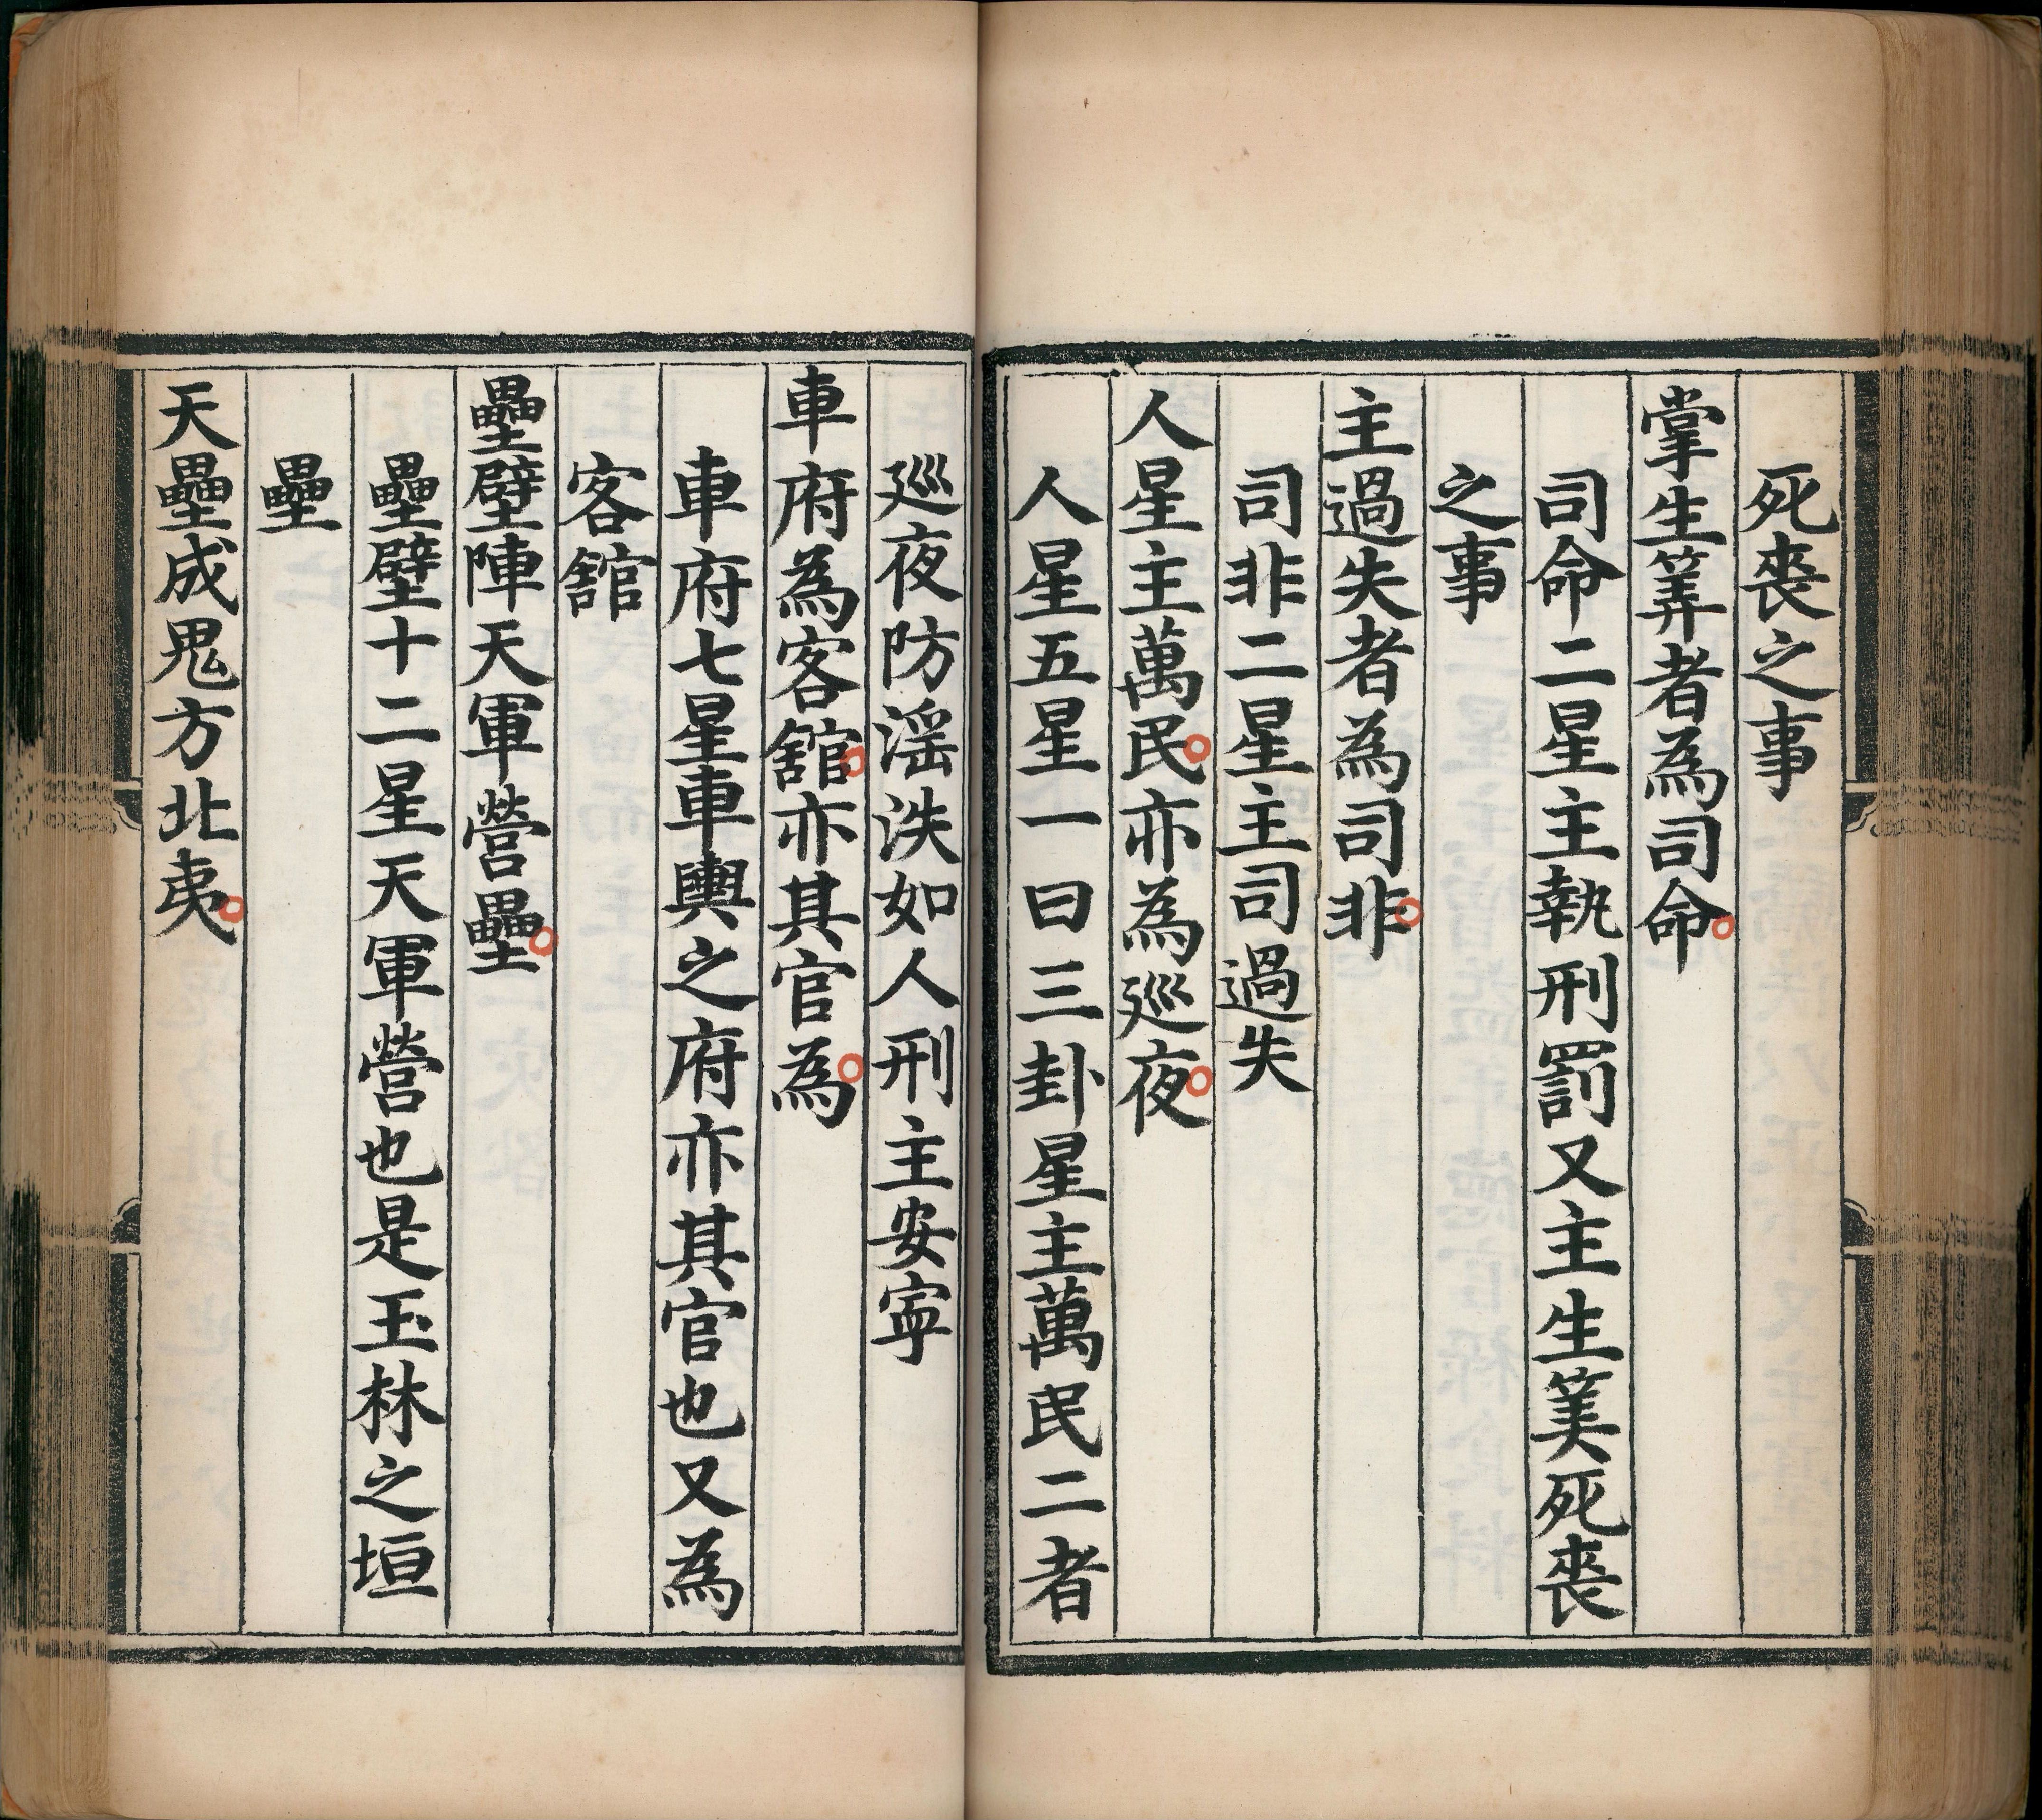 死喪之事
掌生筭者為司命
司命二星主執刑罰又主生筭死喪
之事
主過失者為司非
司非二星主司過失
人星主萬民亦為巡夜
人星五星一曰三卦星主萬民二者
巡夜防淫泆如人刑主安寧
車府為客舘亦其官為
車府七星車輿之府亦其官也又為
客舘
壘壁陣天軍營壘
壘壁十二星天軍營也是玉林之垣
壘
天壘成鬼方北夷